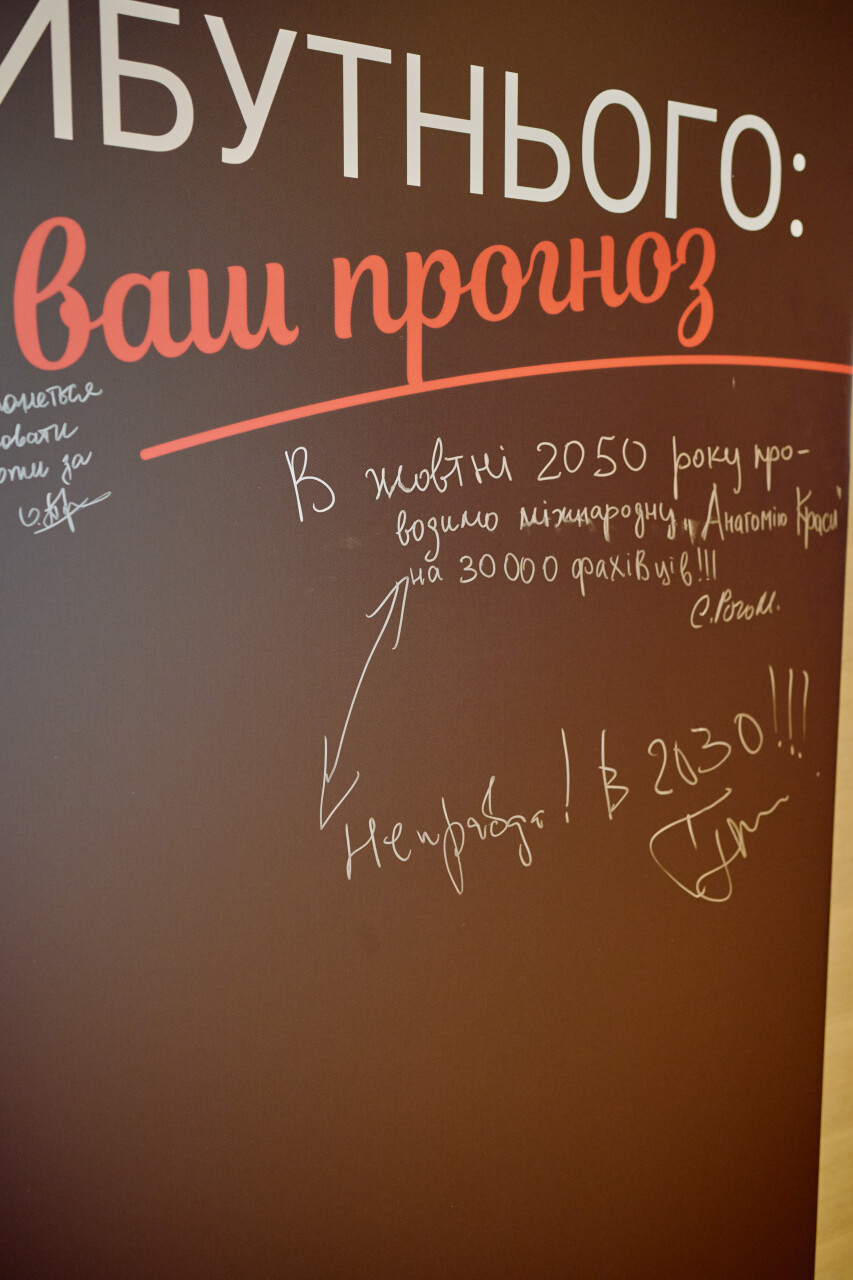 ИБУТНЬОГО:
ваш прогноз
за
В жовтні 2050 року про-
водимо міжнародну „Анатомію Краси"
на 30000 фахівців!!!
Неправда! В 2030!!!